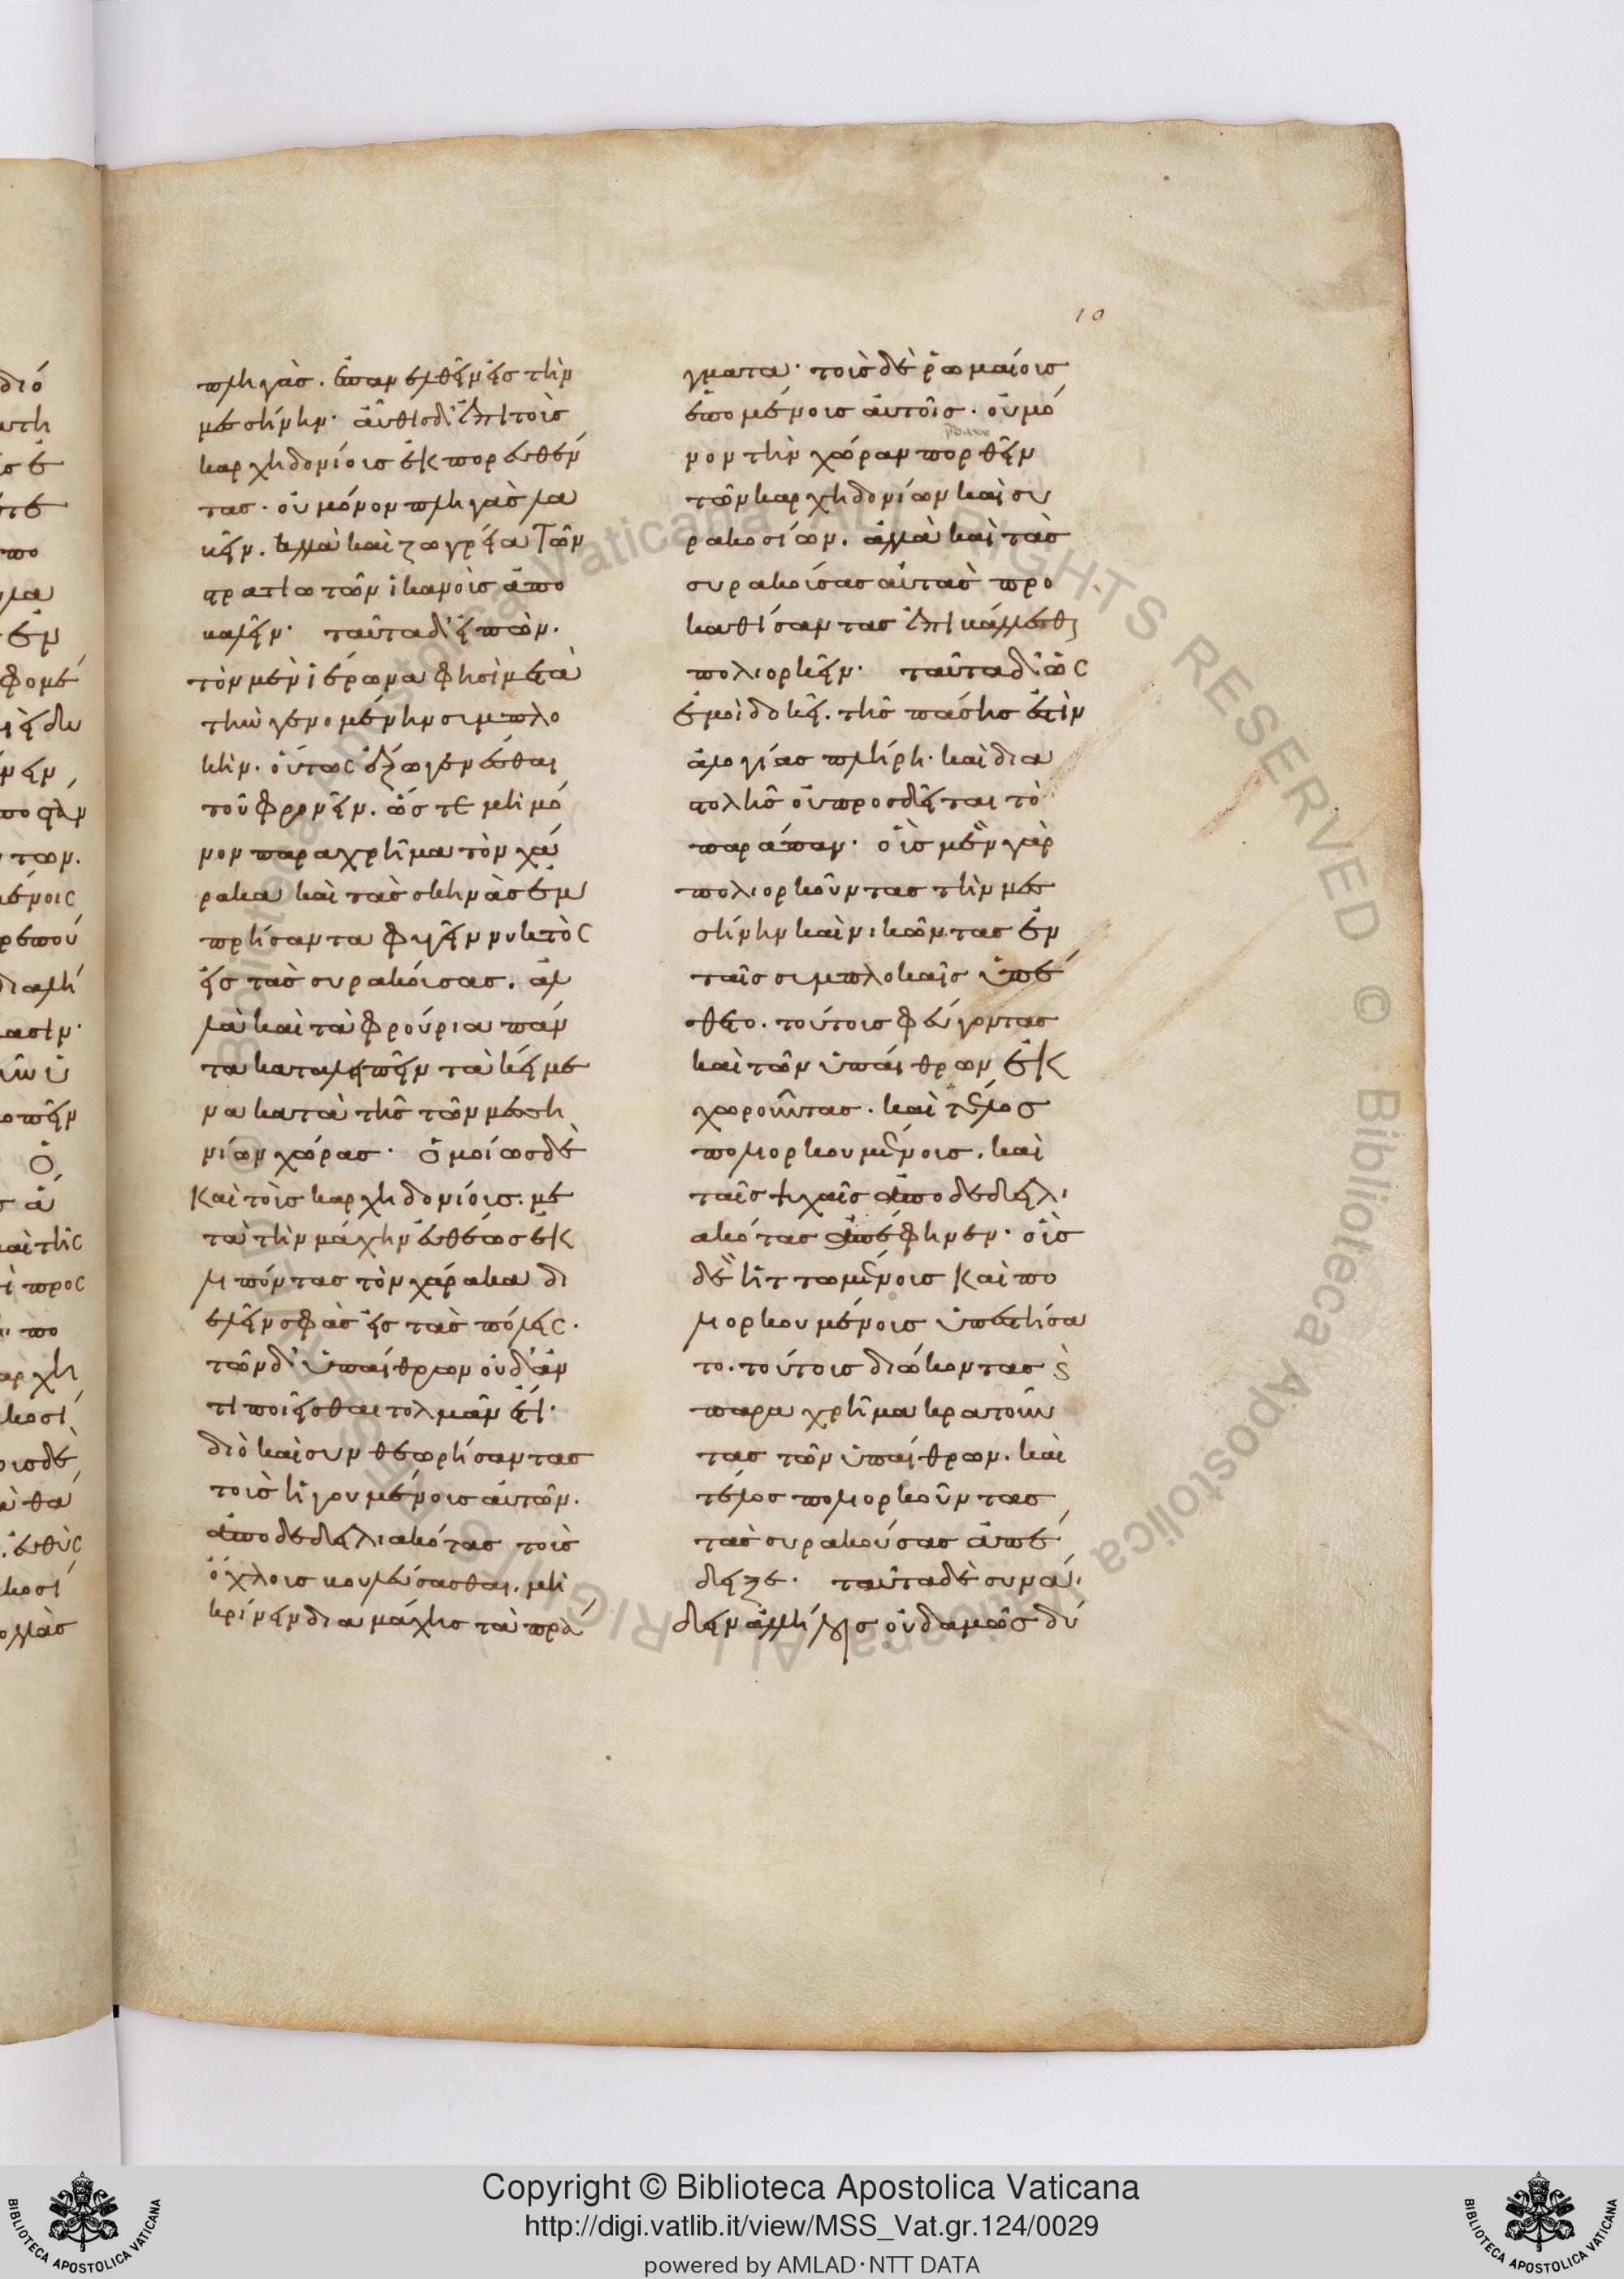 πληγὰς. ἐπανελθεῖν εἰς τὴν
μεσήνην· αὖθις δ' ἐπὶ τοῖς
καρχηδονίοις ἐκπορευθέν
τας. οὐ μόνον πληγὰς λα
βεῖν. ἀλλὰ καὶ ζωγρεία τῶν
στρατιωτῶν ἱκανοὺς ἀπο
βαλεῖν· ταῦτα δ' εἰπὼν.
τὸν μὲν ἱέρωνα φησὶ μετὰ
τὴν γενομένην συμπλο
κὴν. οὕτως ἔξω γενέσθαι
τοῦ φρονεῖν. ὥστε μὴ μό
νον παραχρῆμα τὸν χά
ρακα καὶ τὰς σκηνὰς ἐμ
πρήσαντα φυγεῖν νυκτὸς
εἰς τὰς συρακούσας. ἀλ
λὰ καὶ τὰ φρούρια πάν
τα καταλιπεῖν τὰ κείμε
να κατὰ τῆς τῶν μεση
νίων χώρας· ὁμοίως δὲ
καὶ τοῖς καρχηδονίοις. με
τὰ τὴν μάχην εὐθέως ἐκ
λιπόντας τὸν χάρακα δι
ελεῖν σφᾶς εἰς τὰς πόλεις.
τῶν δ' ὑπαίθρων οὐδ' ἀν
τιποιεῖσθαι τολμᾶν ἔτι·
διὸ καὶ συνθεωρήσαντας
τοῖς ἡγουμένοις αὐτῶν.
ἀποδεδειλιακότας τοὺς
ὄχλους βουλεύσασθαι. μὴ
κρίνειν διὰ μάχης τὰ πρά
10
γματα· τοὺς δὲ ῥωμαίους
ἑπομένους αὐτοῖς. οὐ μό
νον τὴν χώραν πορθεῖν
τῶν καρχηδονίων καὶ συ
ρακοσίων. ἀλλὰ καὶ τὰς
συρακούσας αὐτὰς προ
καθίσαντας ἐπιβάλλεσθαι
πολιορκεῖν· ταῦτα δ' ὡς
ἐμοὶ δοκεῖ. τῆς πάσης ἐστὶν
ἀλογίας πλήρη. καὶ δια
στολῆς οὐ προσδεῖται τὸ
παράπαν· οὓς μὲν γὰρ
πολιορκοῦντας τὴν με
σήνην καὶ νικῶντας ἐν
ταῖς συμπλοκαῖς ὑπέ
θετο. τούτους φεύγοντας
καὶ τῶν ὑπαίθρων ἐκ
χωροῦντας. καὶ τέλος
πολιορκουμένους. καὶ
ταῖς ψυχαῖς ἀποδεδειλι
ακότας ἀπέφηνεν· οὓς
δὲ ἡττωμένους καὶ πο
λιορκουμένους ὑπεστήσα
το. τούτους διώκοντας καὶ
παραχρῆμα κρατοῦν
τας τῶν ὑπαίθρων. καὶ
τέλος πολιορκοῦντας
τὰς συρακούσας ἀπέ
δειξε· ταῦτα δὲ συνᾴ
δειν ἀλλήλοις οὐδαμῶς δύ
Copyright © Biblioteca Apostolica Vaticana
http://digi.vatlib.it/view/MSS_Vat.gr.124/0029
powered by AMLAD·NTT DATA